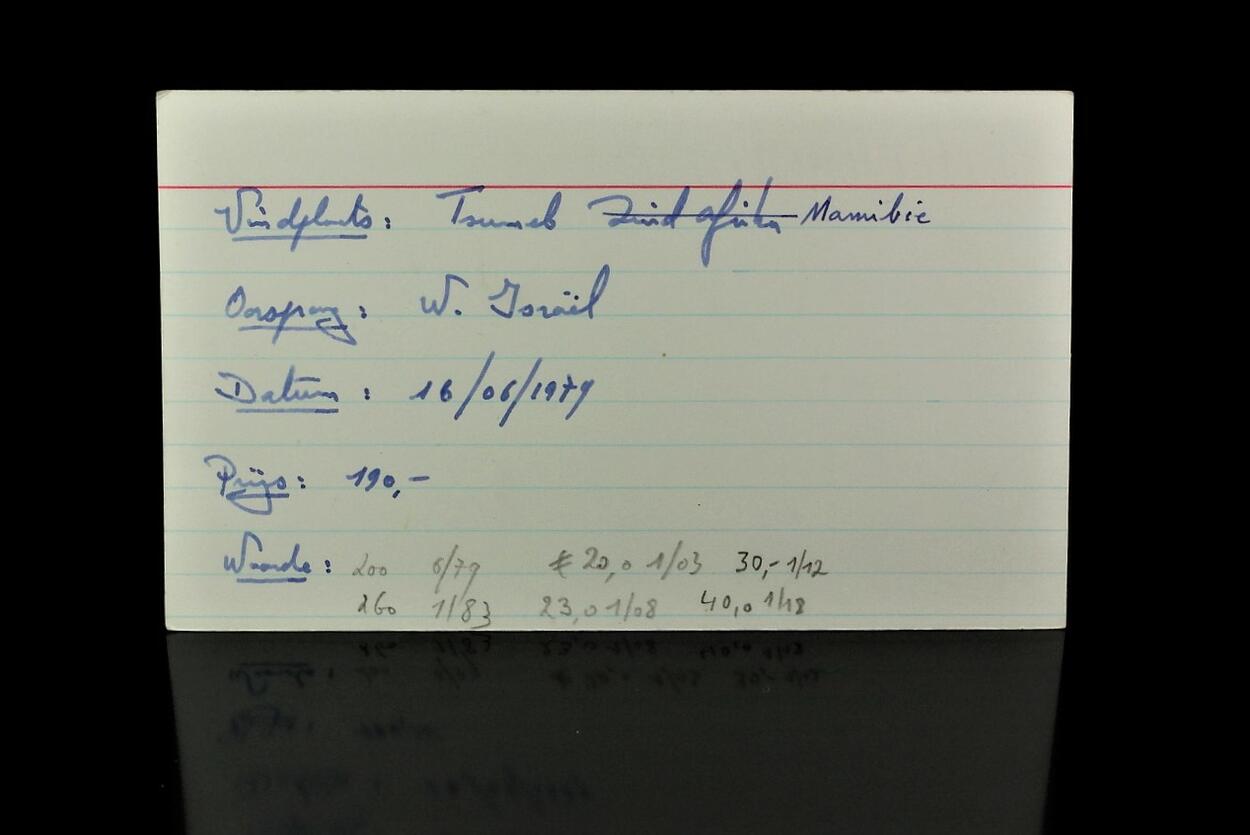 Vindplaats: Tsumeb Zuid Afrika Namibie
Oorsprong: W. Israël
Datum: 16/06/1979
Prijs: 190,-
Waarde: 200 6/79 € 20,0 1/03 30,- 1/12
260 1/83 23,0 1/08 40,0 1/18